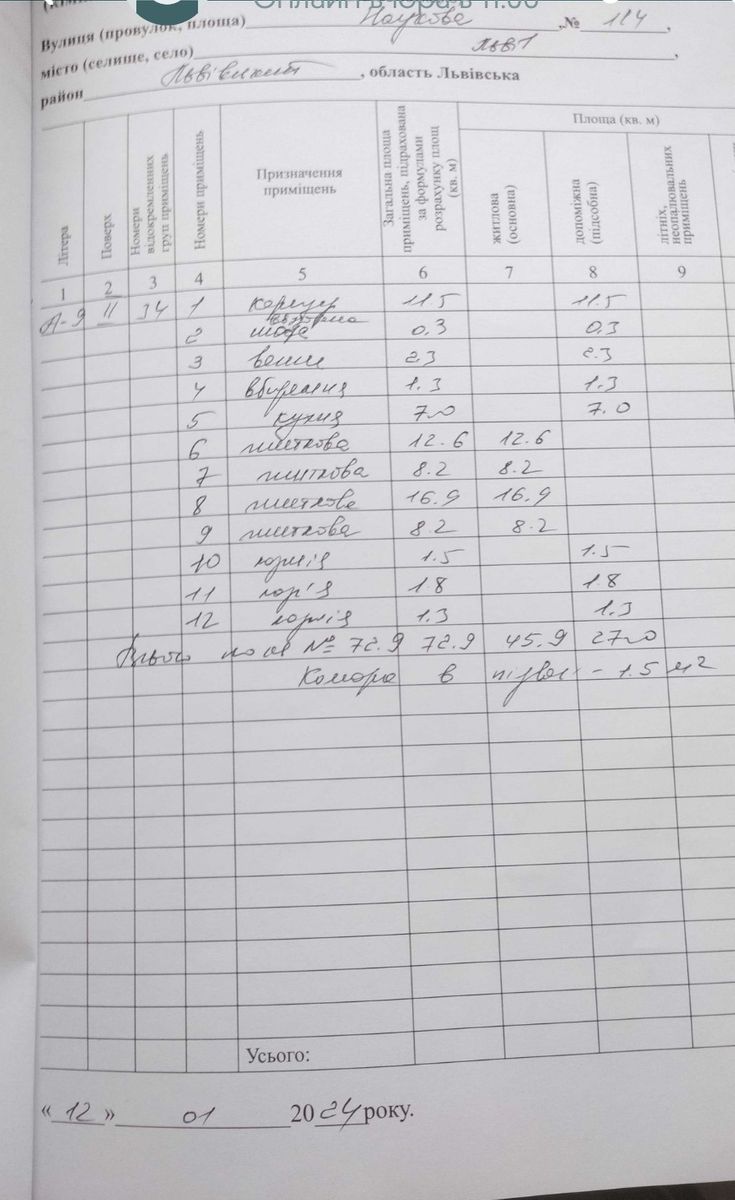 Онлайн вчора в 11:00
Вулиця (провулок, площа) Наукова ,№ 114,
місто (селище, село) Львів,
район Львівський, область Львівська
Літера Поверх Номери відокремлених груп приміщень Номери приміщень Призначення приміщень Загальна площа приміщень, підрахована за формулами розрахунку площ (кв. м) Площа (кв. м)
житлова (основна) допоміжна (підсобна) літніх, неопалювальних приміщень
1 2 3 4 5 6 7 8 9
А-9 II 34 1 коридор 11.5 11.5
2 шафа 0.3 0.3
3 ванна 2.3 2.3
4 вбиральня 1.3 1.3
5 кухня 7.0 7.0
6 житлова 12.6 12.6
7 житлова 8.2 8.2
8 житлова 16.9 16.9
9 житлова 8.2 8.2
10 лоджія 1.5 1.5
11 1.8 1.8
12 лоджія 1.3 1.3
Всього по кв № 72.9 72.9 45.9 27.0
Комора в підвалі - 1.5 м2
Усього:
«12» 01 2024 року.